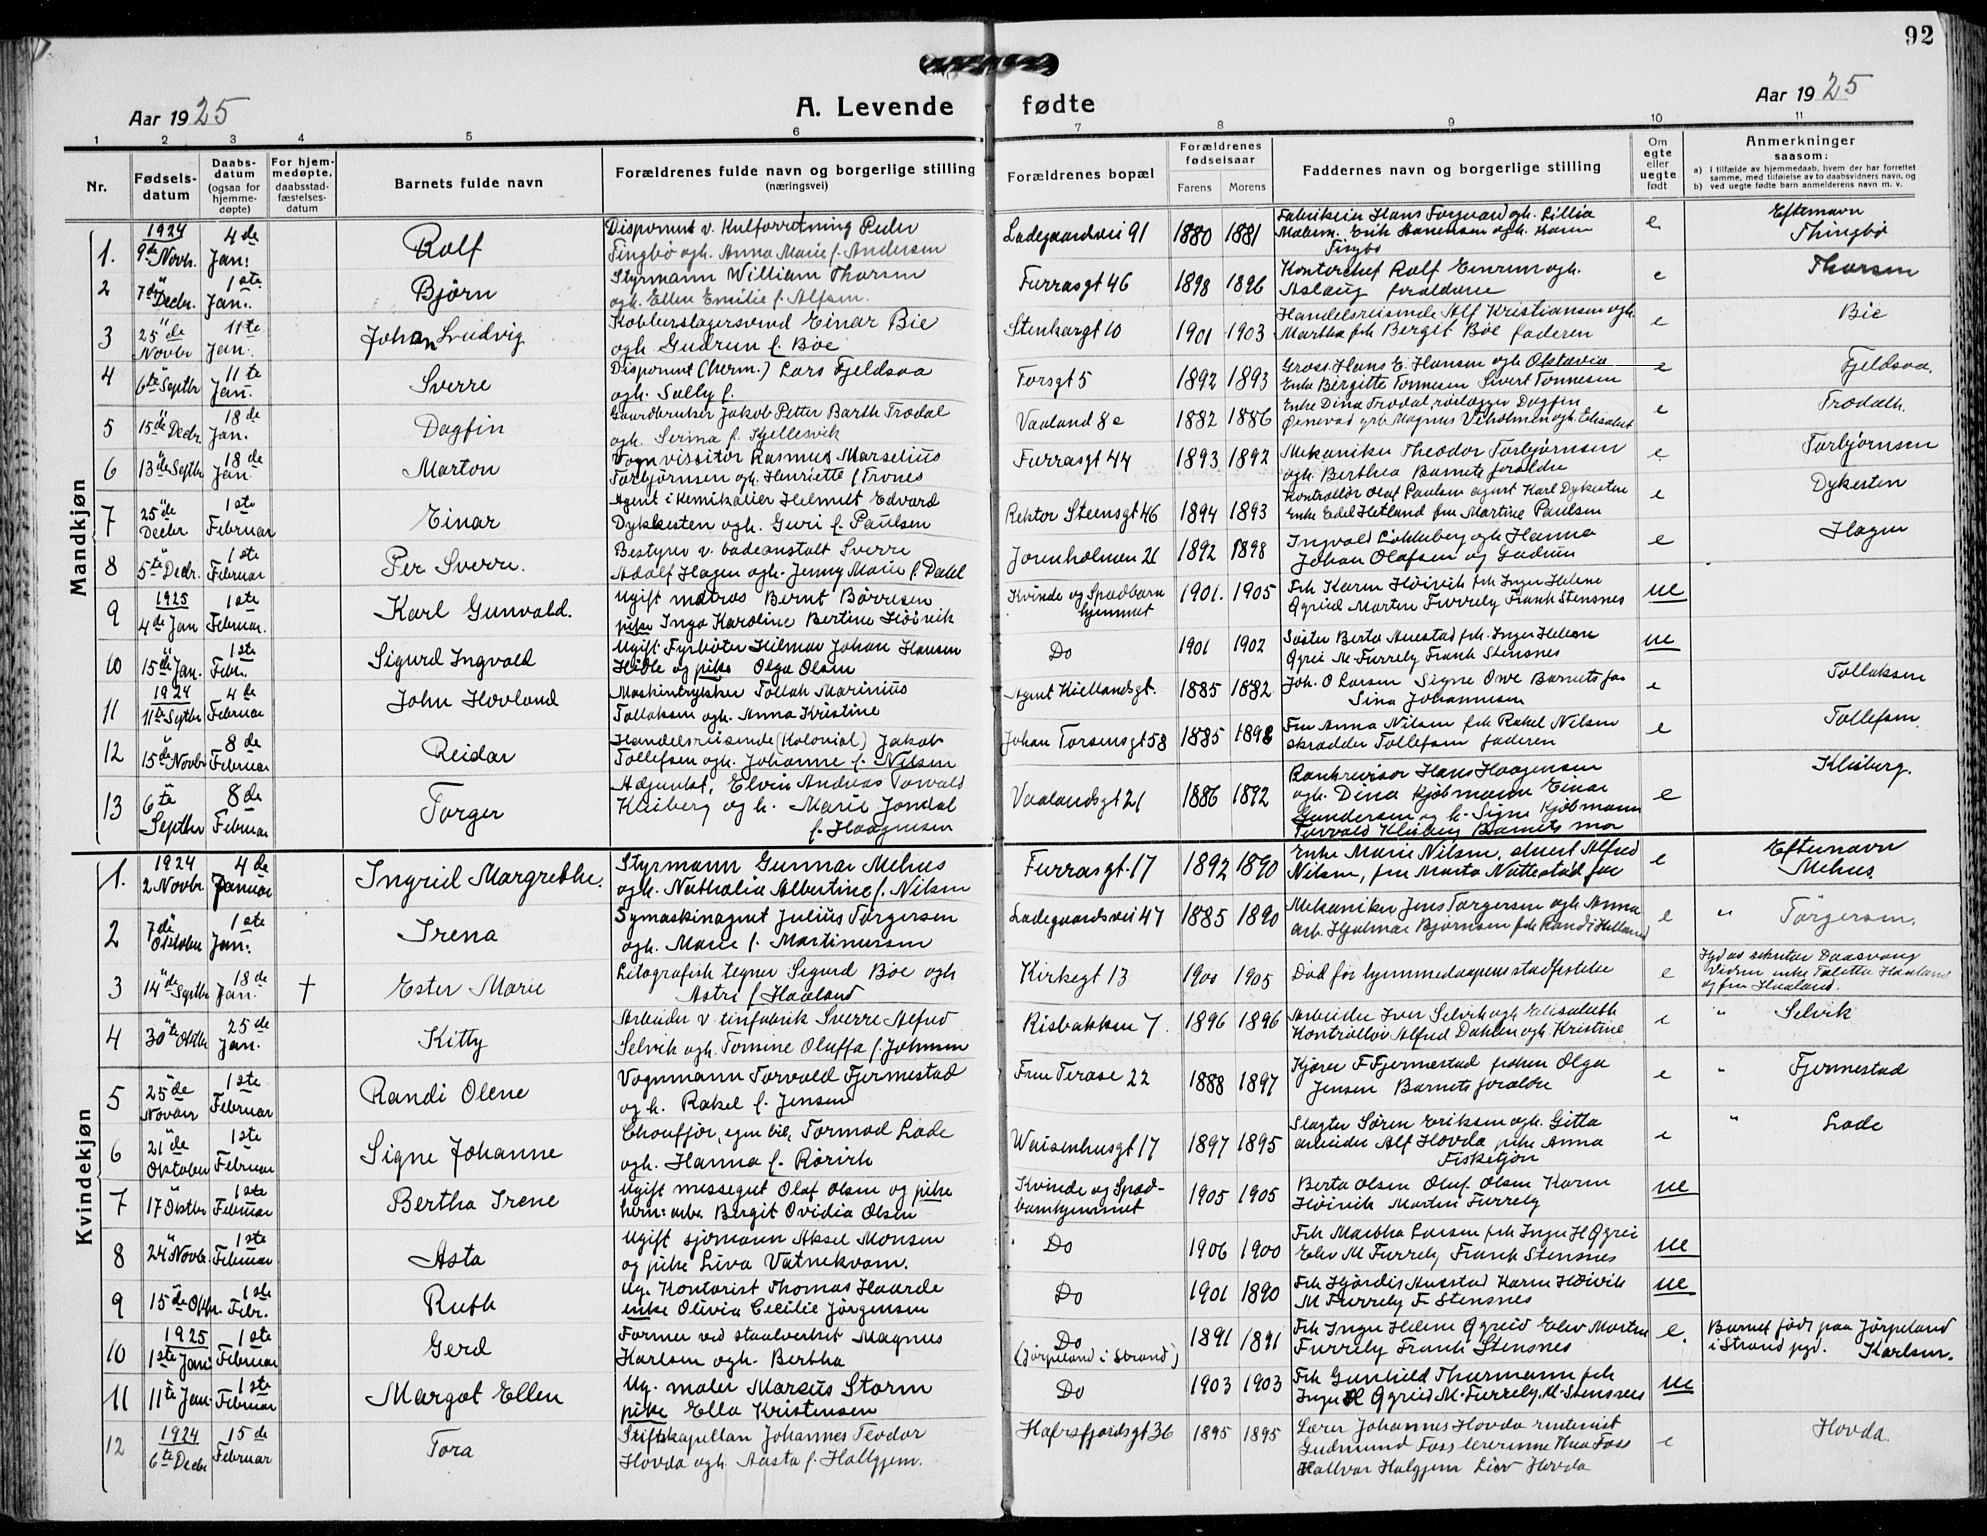 92
Aar 1925
A. Levende fødte
Aar 1925
1 2 3 4 5 6 7 8 9 10 11
Nr.
Fødsels-
datum
Daabs-
datum
(ogsaa for
hjemme-
døpte)
For hjem-
medøpte,
daabsstad-
fæstelses-
datum
Barnets fulde navn
Forældrenes fulde navn og borgerlige stilling
(næringsvei)
Forældrenes bopæl
Forældrenes
fødselsaar
Farens Morens
Faddernes navn og borgerlige stilling
Om
egte
eller
uegte
født
Anmerkninger
saasom:
a) i tilfælde av hjemmedaab, hvem der har forrettet
samme, med tilføielse av to daabsvidners navn, og
b) ved uegte fødte barn anmelderens navn m. v.
Mandkjøn
1. 1924 9de Novb. 4de Jan: Rolf
Disponent v. Kulforretning Peder
Tingbø ogh. Anna Marie f. Andersen
Ladegaardsvei 91 1880 1881
e Efternavn
Thingbø
2 7de Decbr. 1ste Jan. Bjørn
Styrmann William Thorsen
ogh. Ellen Emilie f. Alfsen.
Furrasgt 46 1898 1896
Kontorchef Rolf Einrem ogh.
Aslaug foreldrene
e Thorsen
3 25de Novbr 11te Jan. Johan Ludvig
Kobberslagersvend Einar Bie
ogh. Gudrun f. Bøe
Stenkargt 10 1901 1903
Handelsreisende Alf Kristiansen ogh.
Martha frk Bergit Bøe faderen
e Bie
4 6te Septbr 11te Jan. Sverre
Disponent (herm.) Lars Fjeldsaa
ogh. Sally f.
Torsgt 5 1892 1893
Gros. Hans E. Hansen ogh Oktavia
Enke Birgitte Tønnesen Sivert Tønnesen
e Fjeldsaa.
5 15de Decbr. 18de Jan. Dagfin
Gaardbruker Jakob Petter Barth Trodal
ogh. Serina f. Kjellesvik
Vaaland 8c 1882 1886
e Trodalh.
6 13de Septbr 18de Jan. Morton
Vognvisitør Rasmus Marselius
Torbjørnsen ogh. Henriette f Trones
Furrasgt 44 1893 1892
Mekaniker Theodor Torbjørnsen
ogh. Berthea Barnets foreldre
e Torbjørnsen
7 25de Decbr 1ste Februar Einar
Agent i Kemikalier Helmut Edvard
Dykkesten ogh. Guri f. Paulsen
Rektor Steensgt 46 1894 1893
Kontrollør Olaf Paulsen agent Karl Dykesten
Enke Edel Hetland fru Martine Paulsen
e Dykesten
8 5te Decbr. 1ste Februar Per Sverre.
Bestyrer v. badeanstalt Sverre
Adolf Hagen ogh. Jenny Marie f. Dahl
Jorenholmen 26 1892 1898
Ingvald Løkkeberg ogh Hanna
Johan Olafsen og Gudrun
e Hagen
9 1925 4de Jan 1ste Februar. Karl Gunvald.
Ugift matros Bernt Børresen
pike Inga Karoline Bertine Høivik
Kvinde og Spædbarn
hjemmet 1901. 1905
Frk Karen Høivik frk Inger Helene
Øgreid Morten Furreby Frank Stensnes
ue
10 15de Jan. 1ste Febr. Sigurd Ingvald
Ugift Fyrbøter Hilmar Johan Hansen
Hidle og pike Olga Olsen
Do 1901 1902
Søster Berta Auestad frk. Inger Helene
Øgrei M Furreby Frank Stensnes
ue
11 1924 11te Septbr 4de Februar John Hovland
Maskintrykker Tollak Marinius
Tollaksen ogh. Anna Kristine
Agent Kiellandsgt. 1885 1882
Joh. O Larsen Signe Owe Barnets far
Sina Johannesen
e Tollaksen
12 15de Novbr 8de Februar Reidar
Handelsreisende (Kolonial) Jakob
Tollefsen ogh. Johanne f. Nilsen
Johan Torsensgt 58 1885 1898
Fru Anna Nilsen frk Rakel Nilsen
skrædder Tollefsen faderen
e Tollefsen
13 6te Septbr 8de Februar Torger
Adjunkt, Elvin Andreas Torvald
Kleiberg og h. Marie Jondal
f. Haagensen
Vaalandsgt 21 1886 1892
Bankrevisor Hans Haagensen
ogh. Dina Kjøbmann Einar
Gundersen og h. Signe Kjøbmann
Torvald Kleiberg Barnets mor
e Kleiberg.
Kvindekjøn
1. 1924 2 Novbr. 4de Januar Ingrid Margrethe.
Styrmann Gunnar Mehus
ogh. Nathalia Albertine f. Nilsen
Furrasgt. 17 1892 1890
Enke Marie Nilsen, stuert Alfred
Nilsen, fru Marta Nattestad far
e Efternavn
Mehus.
2 7de Oktober 1ste Jan: Irena
Symaskinagent Julius Torgersen
ogh. Marie f. Martinussen
Ladegaardsvei 47 1885 1890
Mekaniker Jens Torgersen ogh Anna
arb. Hjalmar Bjørnsen frk Randi Helland
e " Torgersen.
3 14de Septbr 18de Jan. † Ester Marie
Litografisk tegner Sigurd Bøe ogh
Astri f Haaland
Kirkegt 13 1900 1905
Død før hjemmedaapens stadfestelse
e
og fru Haaland.
4 30te Oktbr 25de Jan. Kitty
Arbeider v. tinfabrik Sverre Alfred
Selvik ogh. Tomine Oluffa f. Johnsen
Risbakken 7. 1896 1896
Arbeider Iver Selvik ogh Elisabeth
Kontrollør Alfred Dahlen ogh Kristine
e " Selvik
5 25de Novbr 1ste Februar Randi Olene
Vognmann Torvald Fjermestad
og h. Rakel f. Jensen
Frue Terase 22 1888 1897
Kjører F Fjermestad frøken Olga
Jensen Barnets foreldre
e " Fjermestad
6 21de Oktober 1ste Februar Signe Johanne
Chouffør, egen bil, Tormod Lode
ogh. Hanna f. Rørvik
Waisenhusgt 17 1897 1895
Slagter Søren Eriksen ogh. Gitta
arbeider Alf Hovda pike Anna
Fisketjøn
e " Lode
7 17de Oktbr 1ste Februar Bertha Irene
Ugift messegut Olaf Olsen og pike
herm. arb. Bergit Ovidia Olsen
Kvinde og Spæd-
barnhjemmet 1905 1905
Berta Olsen Oluf Olsen Karen
Høivik Martin Furreby
ue
8 24de Novbr. 1ste Februar Asta
Ugift sjømann Aksel Monsen
og pike Liva Vatnekvam.
Do 1906 1900
Frk Martha Larsen frk Inger H Øgrei
Elev M Furreby Frank Stensnes
ue
9 15de Oktbr. 1ste Febr. Ruth
Ug. Kontorist Thomas Haarde
enke Olivia Cecilie Jørgensen
Do 1901 1890
Frk Hjørdis Auestad Karen Høivik
M Furreby F. Stensnes
ue
10 1925 1ste Jan: 1ste Februar Gerd
Former ved staalverket Magnus
Karlsen ogh. Bertha
Do
(Jørpeland i Strand) 1891 1891
Frk Inger Helene Øgreid Elev Morten
Furreby Frank Stensnes
e. Barnet født paa Jørpeland
i Strand pgd. Karlsen.
11 11te Jan. 1ste Februar Margot Ellen
Ug. maler Marsus Storm
pike Ella Kristensen
Do 1903 1903
Frk Gunhild Thurmann frk
Inger H Øgreid M. Furreby, M. Stensnes
ue
12 1924 6te Decbr 15de Februar Tora
Stiftskapellan Johannes Teodor
Hovda ogh. Aasta f. Hallgjem.
Hafrsfjordsgt 36 1895 1895
Lærer Johannes Hovda rentenist
Gudmund Foss lererinne Thea Foss
Hallvar Halgjem Liv Hovda
e Hovda.